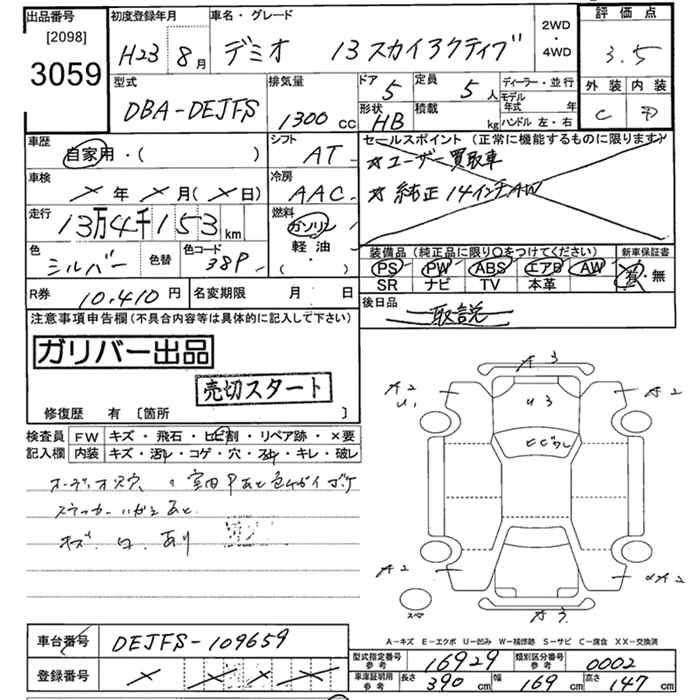 出品番号
[2098]
3059
初度登録年月
H23 8月
車名・グレード
デミオ 13スカイアクティブ
2WD
・
4WD
評価点
3.5
外装 内装
C
型式
DBA-DEJFS
排気量
1300cc
ドア 5
定員 5人
形状 HB
積載 kg
ディーラー・並行
モデル年式 年
ハンドル 左・右
車歴
自家用・( )
シフト
AT
車検
×年×月(×日)
冷房
AAC
走行
13万4千153km
燃料
ガソリン
軽油
・
( )
色
シルバー
色替
色コード
38P
R券 10.410円
名変期限 月 日
セールスポイント(正常に機能するものに限ります)
☆ユーザー買取車
☆純正14インチAW
装備品(純正品に限り○をつけてください)
PS PW ABS エアB AW
SR ナビ TV 本革
新車保証書
有・無
後日品
取説
注意事項申告欄(不具合内容等は具体的に記入して下さい)
ガリバー出品
売切スタート
修復歴 有[箇所 ]
検査員記入欄
FW キズ・飛石・ヒビ割・リペア跡・×要
内装 キズ・汚レ・コゲ・穴・スレ・キレ・破レ
キズ・凹・あり
A3
A2
U1
U3
A2
ヒビワレ
A2
A2
スペア
A3
A-キズ E-エクボ U-凹み W-補修跡 S-サビ C-腐食 XX-交換済
車台番号 DEJFS-109659
登録番号 × × × ×
型式指定番号 参考 16929
類別区分番号 参考 0002
車庫証明用 参考 長さ 390cm 幅 169cm 高さ 147cm